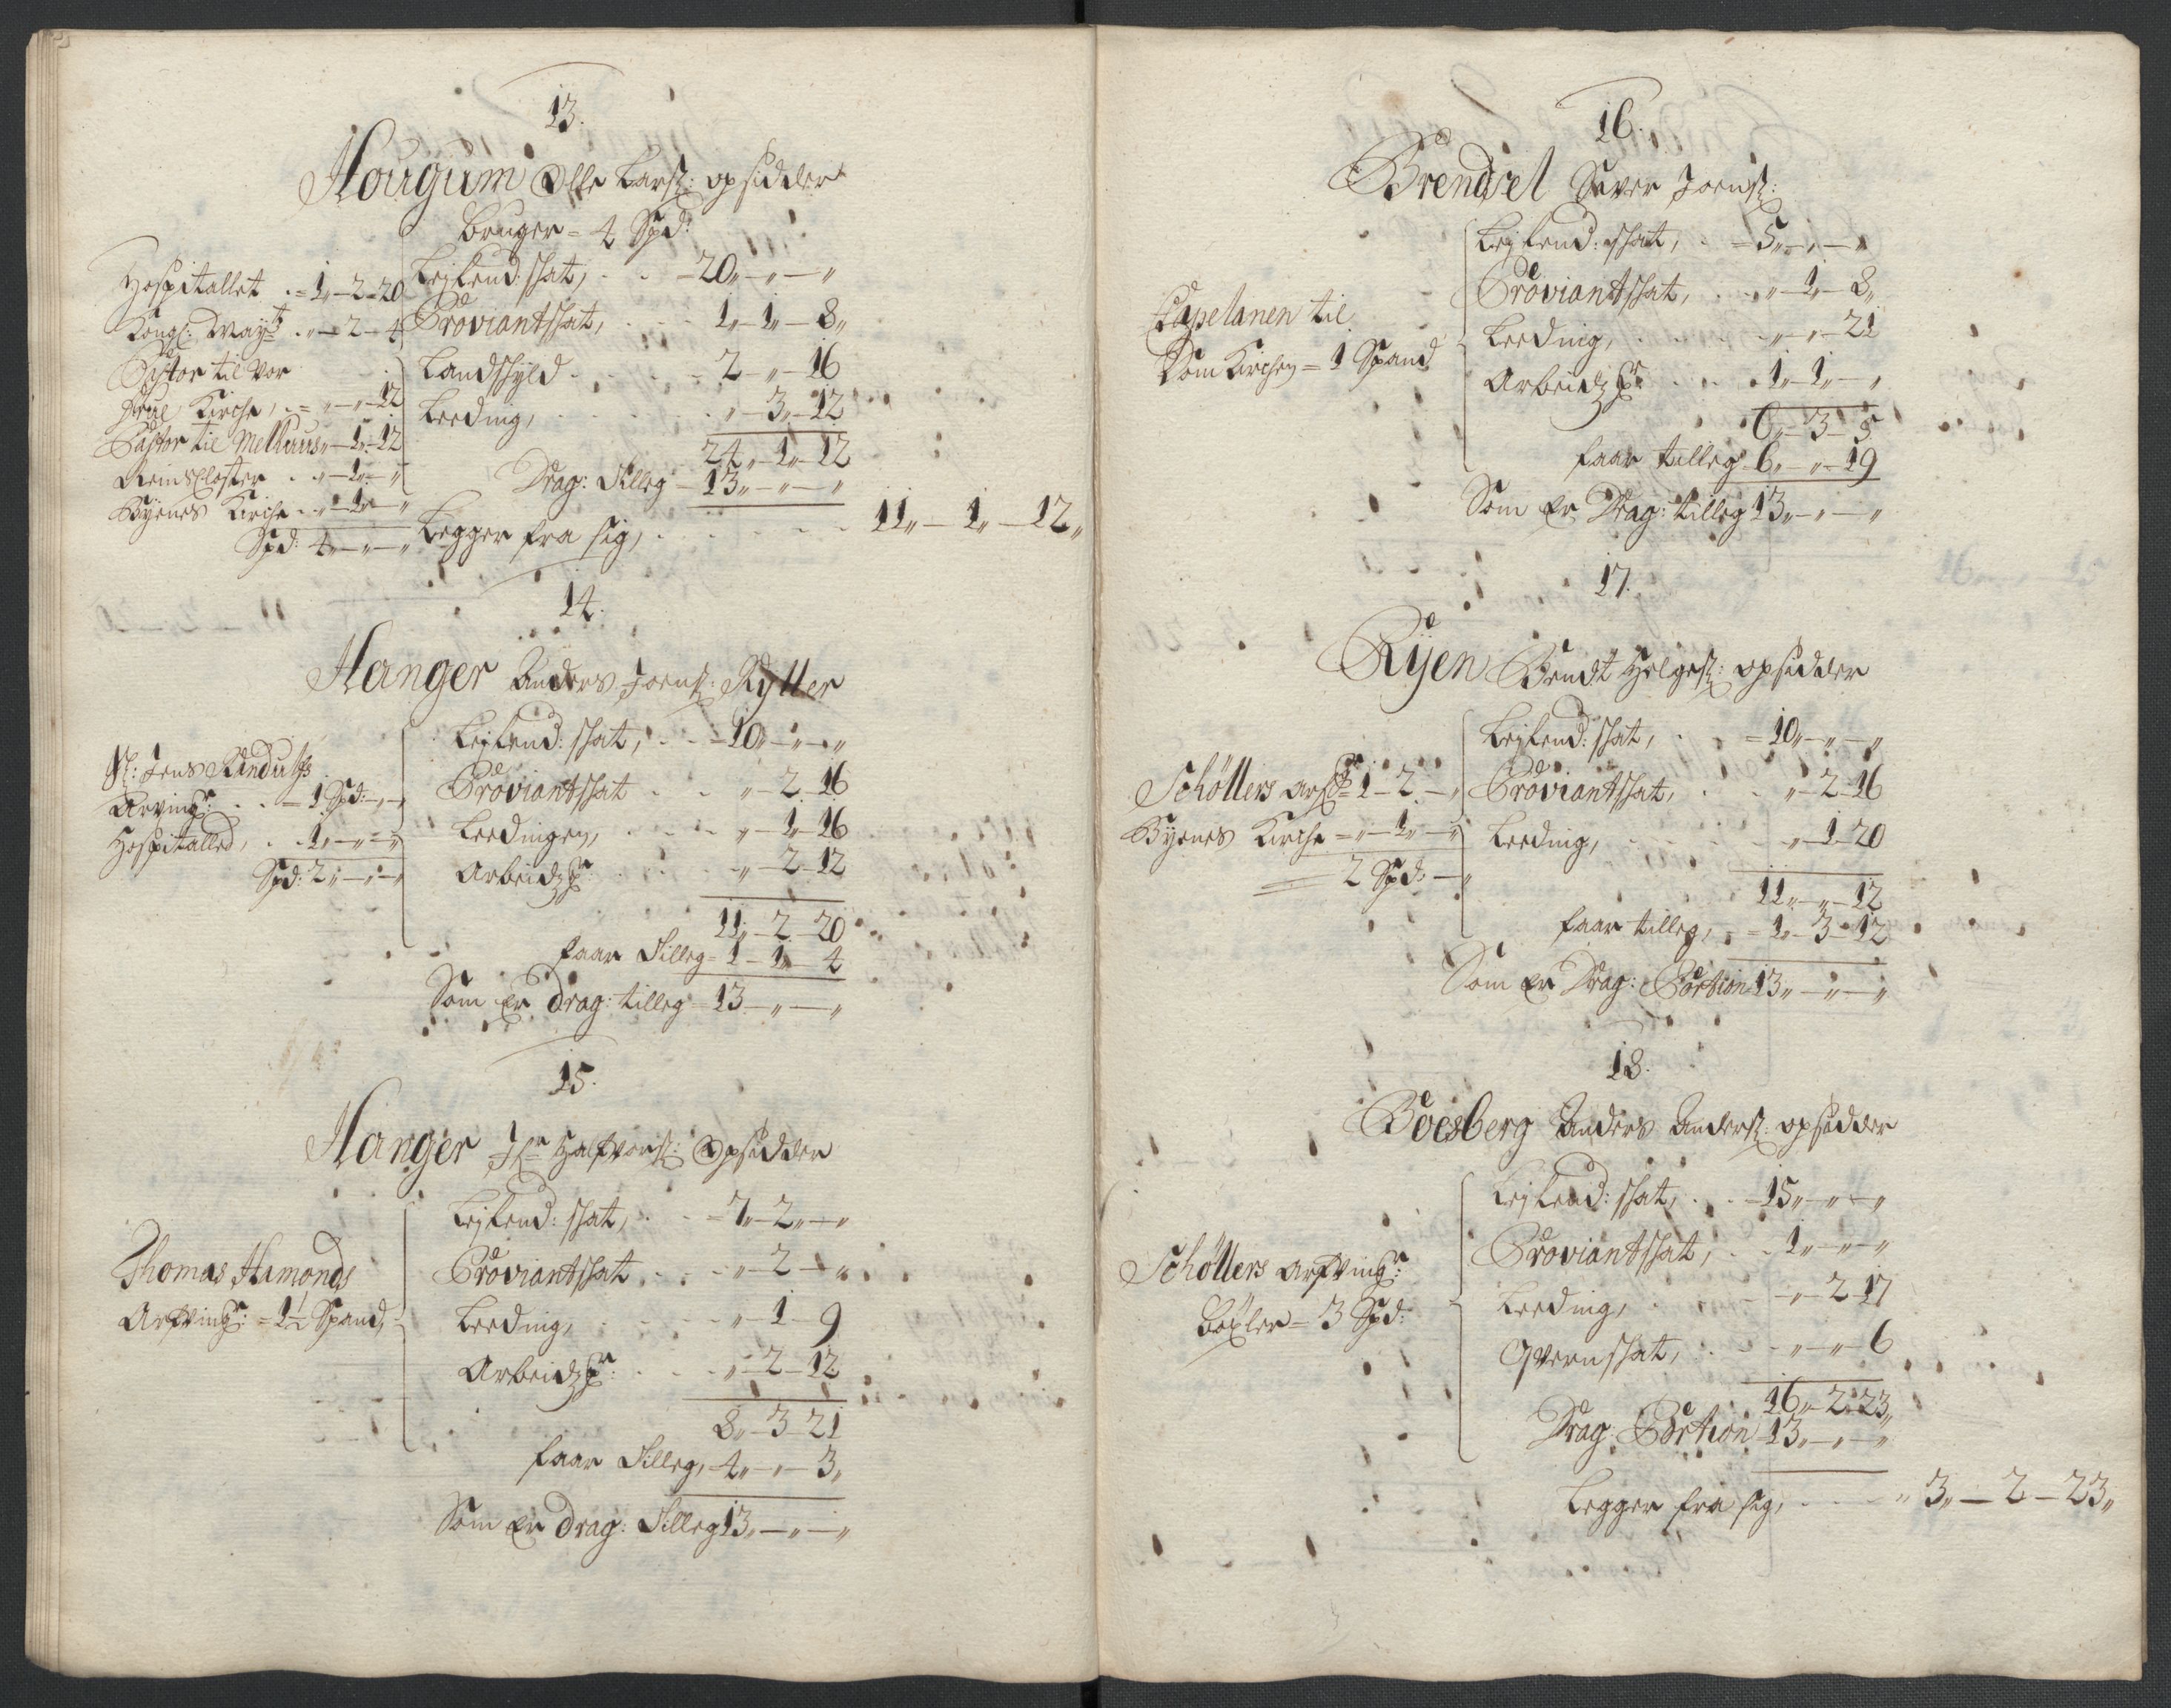 13.
Hougum Olle Larss: opsidder
bruger = 4 Spd:
Hospitallet . = 1„ - 2 - 20
Kongl: Mayt: . „ - 2 - 4
Pastor til vor
Frue Kirche, . = „ - „ - 12
Pastor til Melhuus „ - 1 - 12
Reins Closter . . „ - 1 - „
Byenes Kirche . . „ - 1 - „
Spd: 4„ - „ - „
Leilend: skat, . . - 20„ - „ - „
Proviantskat, . . . 1„ - 1„ - 8„
Landskyld . . . . - 2 - „ - 16
Leeding, . . . . „ - 3„ - 12
24„ - 1„ - 12
Drag: Tilleg - 13„ - „ - „
Legger fra sig, . . . . . 11„ - 1„ - 12„
14.
Hanger Anders Joenss: Rytter
Sl: Jens Randulfs
Arving: . . = 1 Spd: - „ - „
Hospitalled, . . 1„ - „ - „
Spd: 2„ - „ - „
Leilend: skat, . . - 10„ - „ - „
Proviantskat . . „ - 2 - 16
Leedingen, . . . „ - 1 - 16
Arbeidzp: . . . . „ - 2 - 12
11„ - 2 - 20
faar Tilleg = 1 - 1„ - 4
Som er drag: tilleg = 13 - „ - „
15.
Hanger Halfvorss: Opsidder
Thomas Hamonds
Arfving: = 1 1/2 Spand,
Leilend: skat, . . = 7„ - 2„ - „
Proviantskat . . . „ - 2 - „
Leeding, . . . . „ - 1 - 9
Arbeidzp: . . . „ - 2 - 12
8„ - 3 - 21
faar Tilleg, - 4„ - „ - 3„
Som er drag: Tilleg 13„ - „ - „
16.
Brendsel Siver Joenss:
Capelanen til
Dom Kirchen = 1 Spand
Leilend: skat, . = 5„ - „ - „
Proviantskat, . . „ - 1 - 8„
Leeding, . . . . „ - „ - 21
Arbeidzp: . . . . 1„ - 1„ - „
6„ - 3 - 5
faar tilleg - 6„ - „ - 19
Som er Drag: tilleg 13„ - „ - „
17.
Rÿen Bendt Helgess: opsidder
Schöllers Arf: = 1 - 2 - „
Byenes Kirche = „ - 1„ - „
2 Spd: - „
Leilend: skat, . . = 10„ - „ - „
Proviantskat, . . „ - 2 - 16
Leeding, . . . . . „ - 1 - 20
11„ - „ - 12
faar tilleg, . = 1„ - 3 - 12
Som er Drag: Portion 13„ - „ - „
18.
Boesberg Anders Anderss: opsidder
Schöllers Arfving:
Böxler = 3 Spd:
Leilend: skat, . . = 15„ - „ - „
Proviantskat, . . 1„ - „ - „
Leeding, . . . . - „ - 2 - 17
Qvernskat, . . . . „ - „ - 6
16„ - 2 - 23„
Drag: Portion 13„ - „ - „
Legger fra sig, . . . . „ 3„ - 2 - 23„